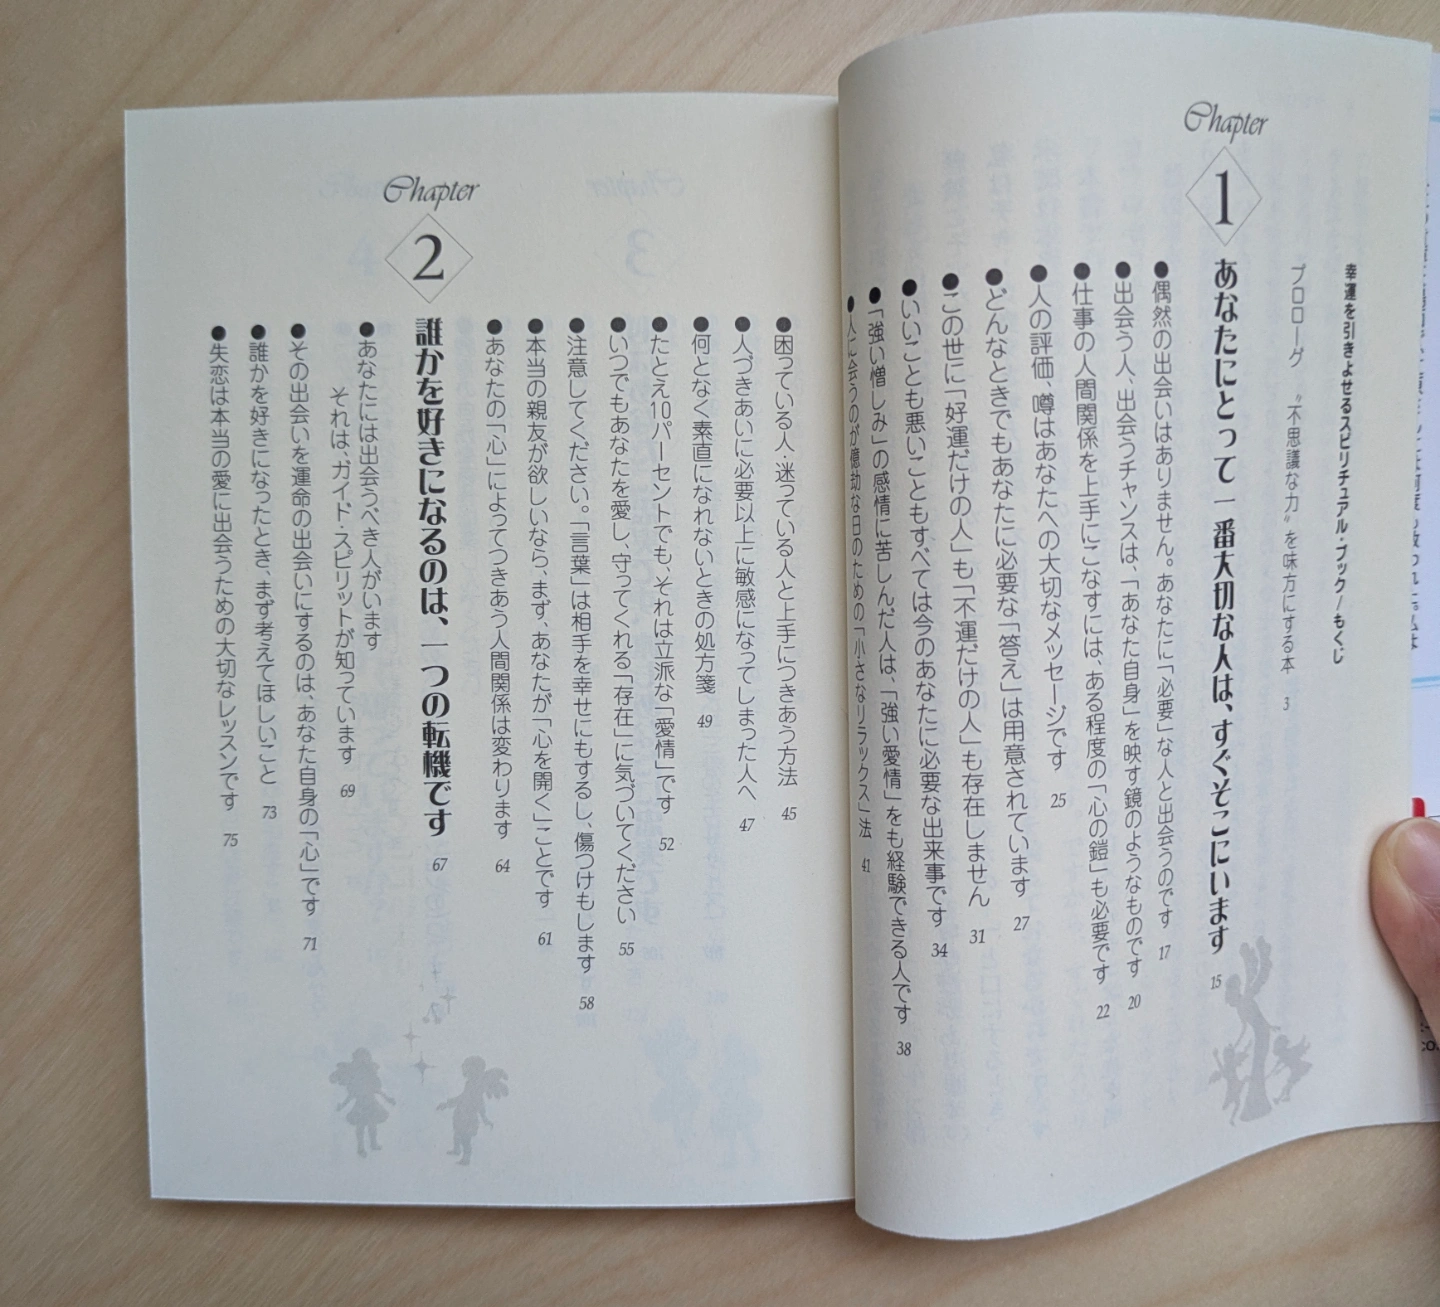 幸運を引きよせるスピリチュアル・ブック/もくじ
プロローグ 〝不思議な力〟を味方にする本 3
Chapter 1 あなたにとって一番大切な人は、すぐそこにいます 15
●偶然の出会いはありません。あなたに「必要」な人と出会うのです 17
●出会う人、出会うチャンスは、「あなた自身」を映す鏡のようなものです 20
●仕事の人間関係を上手にこなすには、ある程度の「心の鎧」も必要です 22
●人の評価、噂はあなたへの大切なメッセージです 25
●どんなときでもあなたに必要な「答え」は用意されています 27
●この世に「好運だけの人」も「不運だけの人」も存在しません 31
●いいことも悪いこともすべては今のあなたに必要な出来事です 34
●「強い憎しみ」の感情に苦しんだ人は、「強い愛情」をも経験できる人です 38
●人に会うのが億劫な日のための「小さなリラックス」法 41
●困っている人・迷っている人と上手につきあう方法 45
●人づきあいに必要以上に敏感になってしまった人へ 47
●何となく素直になれないときの処方箋 49
●たとえ10パーセントでも、それは立派な「愛情」です 52
●いつでもあなたを愛し、守ってくれる「存在」に気づいてください 55
●注意してください。「言葉」は相手を幸せにもするし、傷つけもします 58
●本当の親友が欲しいなら、まず、あなたが「心を開く」ことです 61
●あなたの「心」によってつきあう人間関係は変わります 64
Chapter 2 誰かを好きになるのは、一つの転機です 67
●あなたには出会うべき人がいます
それは、ガイド・スピリットが知っています 69
●その出会いを運命の出会いにするのは、あなた自身の「心」です 71
●誰かを好きになったとき、まず考えてほしいこと 73
●失恋は本当の愛に出会うための大切なレッスンです 75